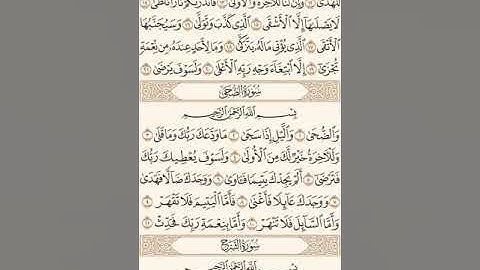 لَلْهُدَىٰ ١٢ وَإِنَّ لَنَا لَلْآخِرَةَ وَالْأُولَىٰ ١٣ فَأَنذَرْتُكُمْ نَارًا تَلَظَّىٰ ١٤
لَا يَصْلَاهَا إِلَّا الْأَشْقَى ١٥ الَّذِي كَذَّبَ وَتَوَلَّىٰ ١٦ وَسَيُجَنَّبُهَا
الْأَتْقَى ١٧ الَّذِي يُؤْتِي مَالَهُ يَتَزَكَّىٰ ١٨ وَمَا لِأَحَدٍ عِندَهُ مِن نِّعْمَةٍ
تُجْزَىٰ ١٩ إِلَّا ابْتِغَاءَ وَجْهِ رَبِّهِ الْأَعْلَىٰ ٢٠ وَلَسَوْفَ يَرْضَىٰ ٢١
سُورَةُ الضُّحَىٰ
بِسْمِ اللَّهِ الرَّحْمَٰنِ الرَّحِيمِ
وَالضُّحَىٰ ١ وَاللَّيْلِ إِذَا سَجَىٰ ٢ مَا وَدَّعَكَ رَبُّكَ وَمَا قَلَىٰ ٣
وَلَلْآخِرَةُ خَيْرٌ لَّكَ مِنَ الْأُولَىٰ ٤ وَلَسَوْفَ يُعْطِيكَ رَبُّكَ
فَتَرْضَىٰ ٥ أَلَمْ يَجِدْكَ يَتِيمًا فَآوَىٰ ٦ وَوَجَدَكَ ضَالًّا فَهَدَىٰ
٧ وَوَجَدَكَ عَائِلًا فَأَغْنَىٰ ٨ فَأَمَّا الْيَتِيمَ فَلَا تَقْهَرْ ٩
وَأَمَّا السَّائِلَ فَلَا تَنْهَرْ ١٠ وَأَمَّا بِنِعْمَةِ رَبِّكَ فَحَدِّثْ ١١
سُورَةُ الشَّرْحِ
بِسْمِ اللَّهِ الرَّحْمَٰنِ الرَّحِيمِ